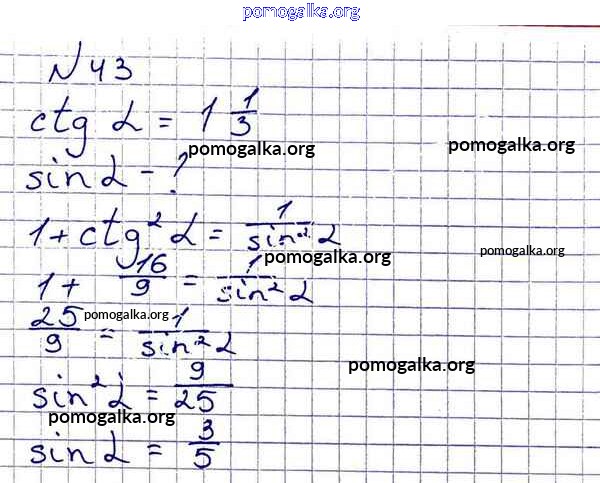 pomogalka.org
N 43
ctg α = 1 1/3
pomogalka.org
pomogalka.org
sin α - ?
1 + ctg² α = 1/sin² α
pomogalka.org
pomogalka.org
1 + 16/9 = 1/sin² α
pomogalka.org
25/9 = 1/sin² α
pomogalka.org
sin² α = 9/25
pomogalka.org
sin α = 3/5